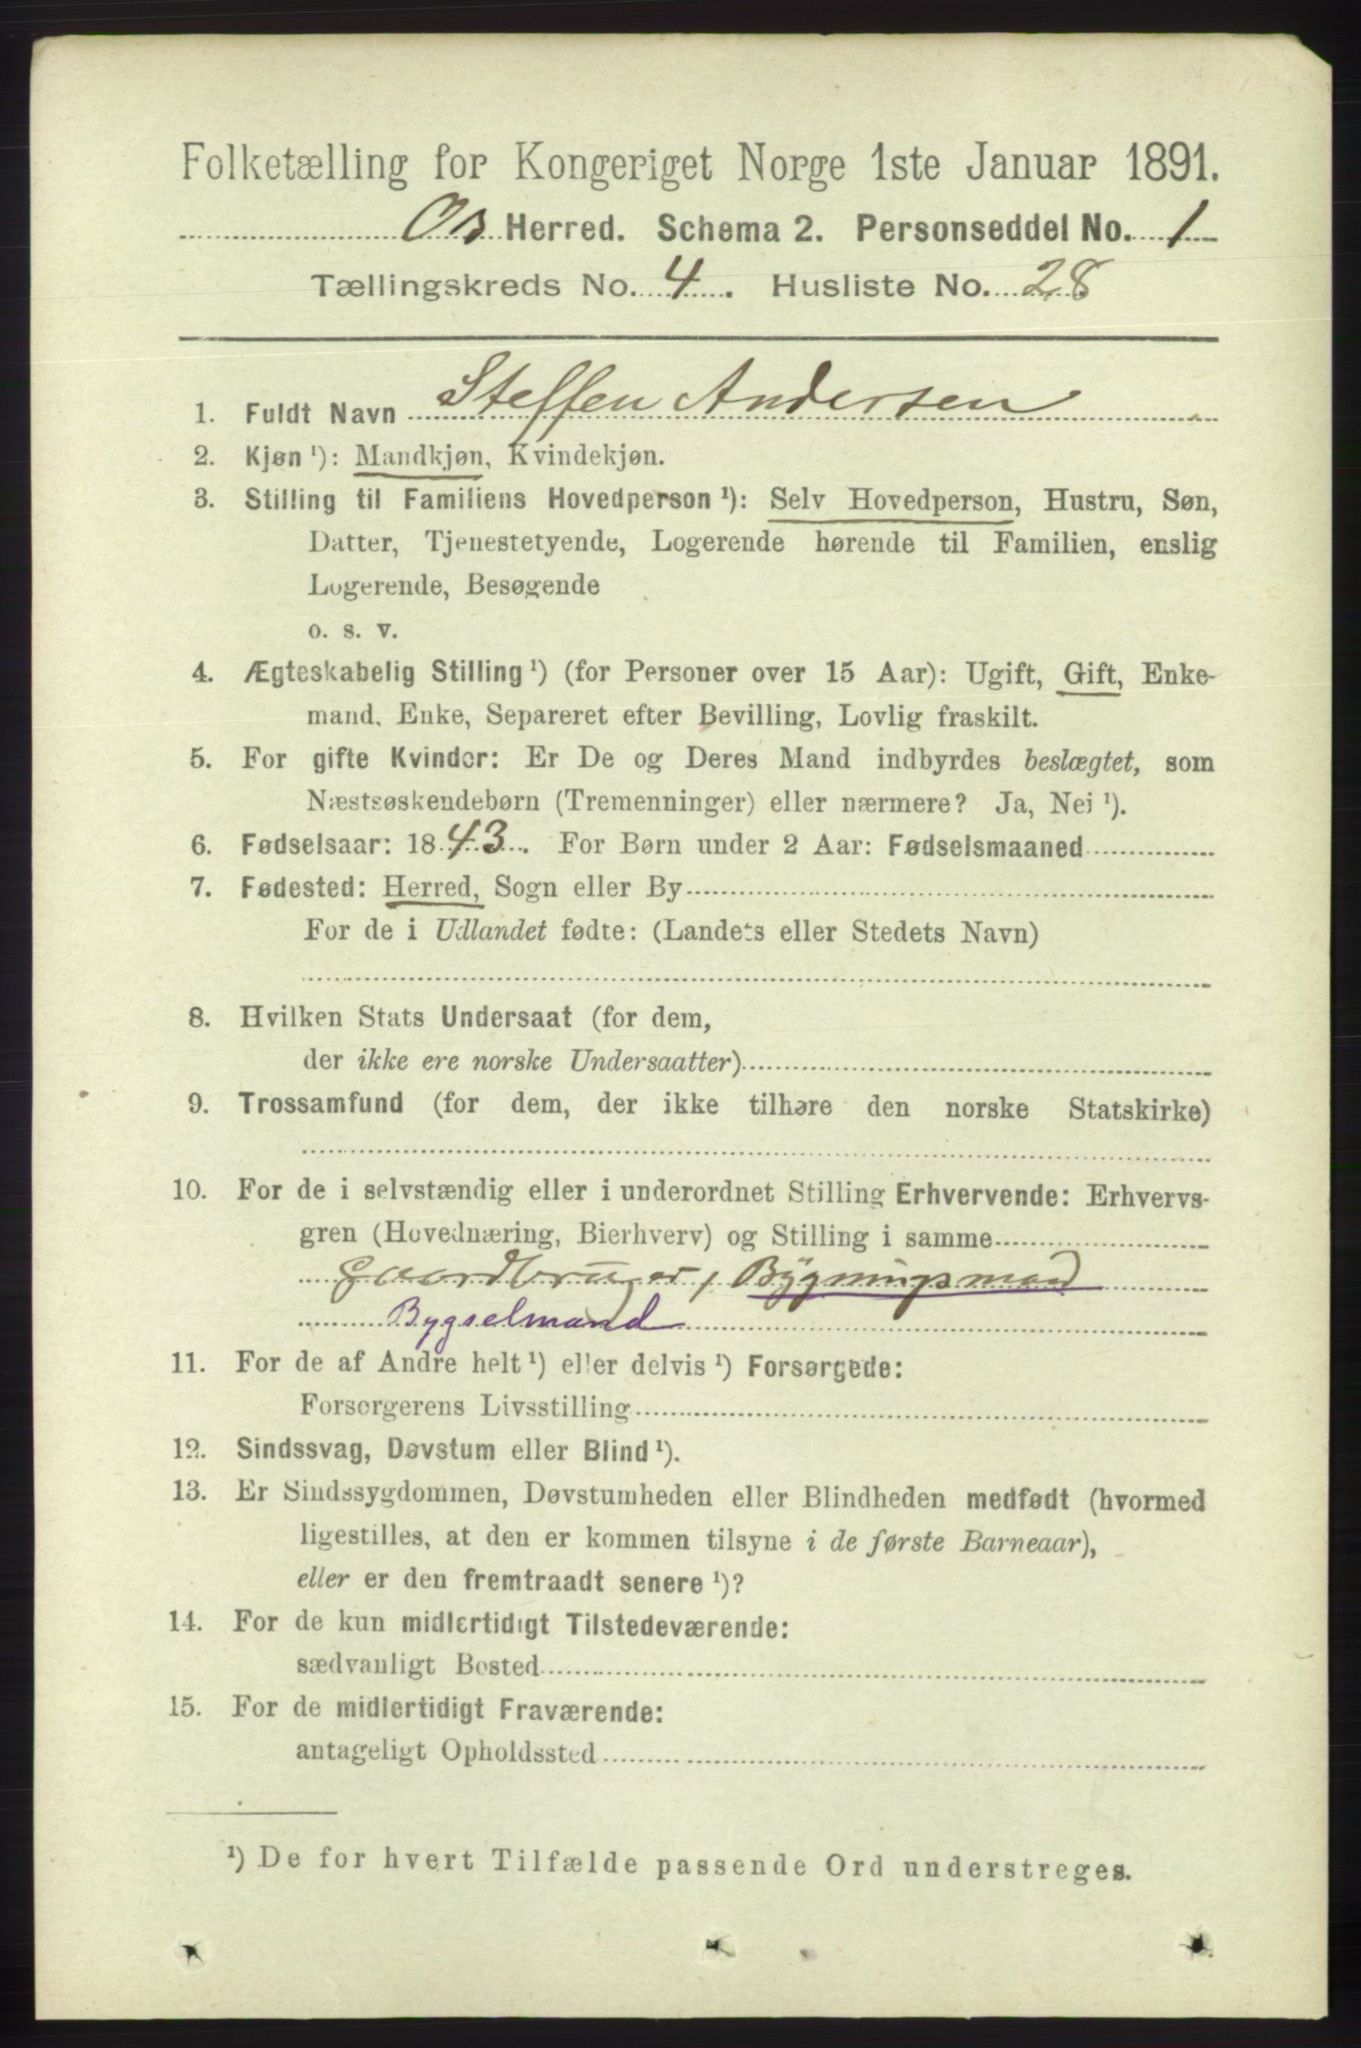 Folketælling for Kongeriget Norge 1ste Januar 1891.
Os Herred. Schema 2. Personseddel No. 1
Tællingskreds No. 4. Husliste No. 28
1. Fuldt Navn Steffen Andersen
2. Kjøn ¹): Mandkjøn, Kvindekjøn.
3. Stilling til Familiens Hovedperson ¹): Selv Hovedperson, Hustru, Søn,
Datter, Tjenestetyende, Logerende hørende til Familien, enslig
Logerende, Besøgende
o. s. v.
4. Ægteskabelig Stilling ¹) (for Personer over 15 Aar): Ugift, Gift, Enke-
mand, Enke, Separeret efter Bevilling, Lovlig fraskilt.
5. For gifte Kvinder: Er De og Deres Mand indbyrdes beslægtet, som
Næstsøskendebørn (Tremenninger) eller nærmere? Ja, Nei ¹).
6. Fødselsaar: 1843. For Børn under 2 Aar: Fødselsmaaned
7. Fødested: Herred, Sogn eller By
For de i Udlandet fødte: (Landets eller Stedets Navn)
8. Hvilken Stats Undersaat (for dem,
der ikke ere norske Undersaatter)
9. Trossamfund (for dem, der ikke tilhøre den norske Statskirke)
10. For de i selvstændig eller i underordnet Stilling Erhvervende: Erhvervs-
gren (Hovednæring, Bierhverv) og Stilling i samme
Gaardbruger, Bygningsmand
Bygselmand
11. For de af Andre helt ¹) eller delvis ¹) Forsørgede:
Forsørgerens Livsstilling
12. Sindssvag, Døvstum eller Blind ¹).
13. Er Sindssygdommen, Døvstumheden eller Blindheden medfødt (hvormed
ligestilles, at den er kommen tilsyne i de første Barneaar),
eller er den fremtraadt senere ¹)?
14. For de kun midlertidigt Tilstedeværende:
sædvanligt Bosted
15. For de midlertidigt Fraværende:
antageligt Opholdssted
¹) De for hvert Tilfælde passende Ord understreges.